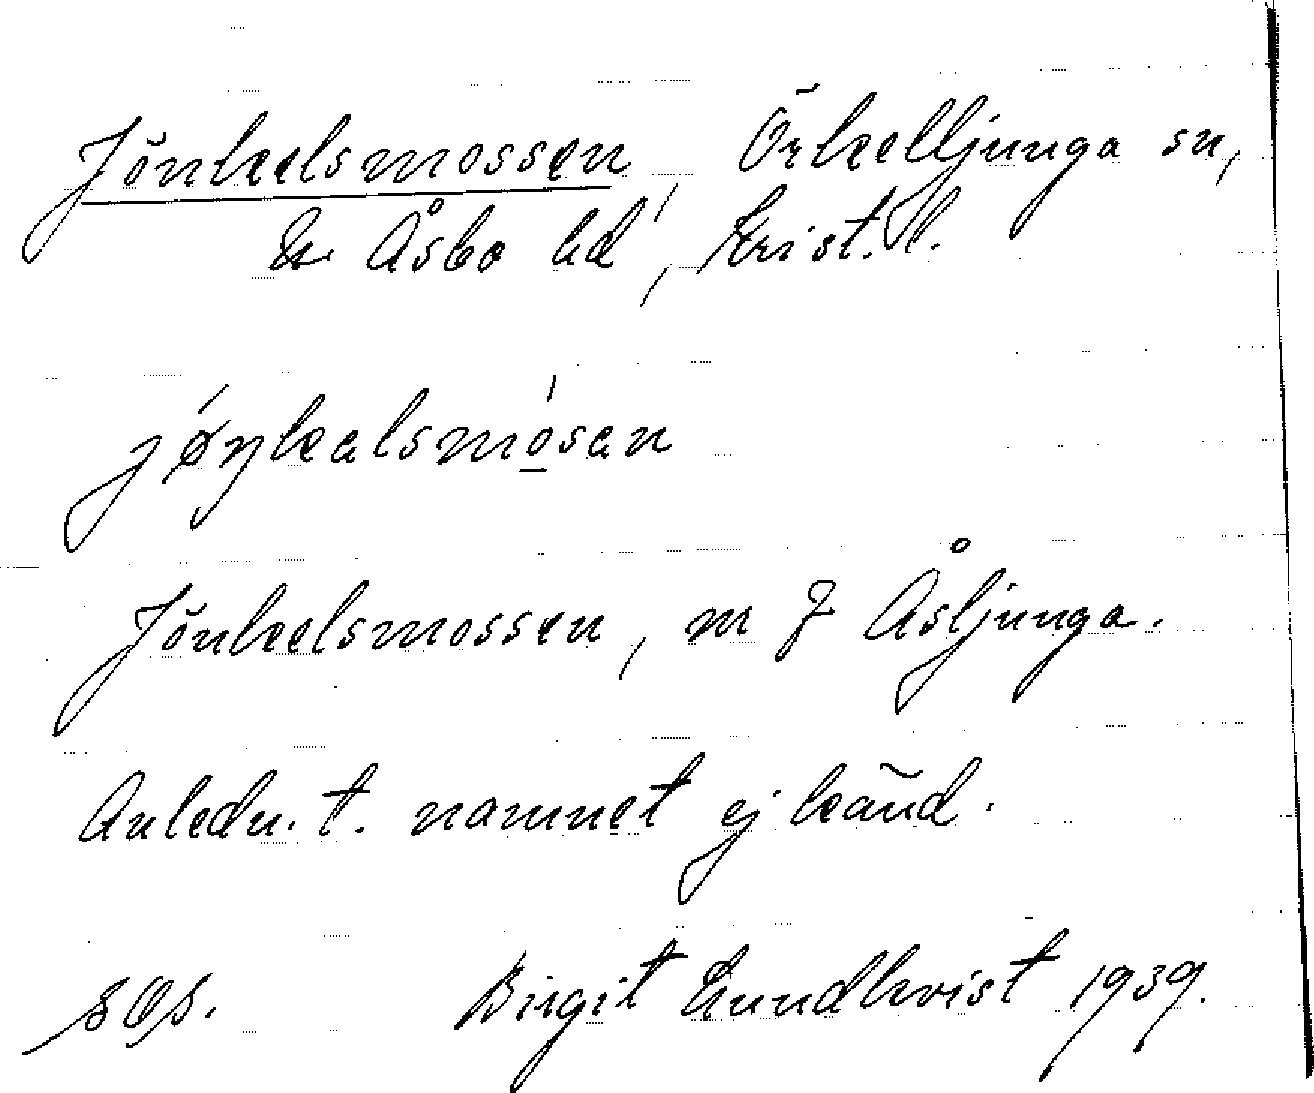 Jönkelsmossen, Örkelljunga sn,
N. Åsbo hd, Krist. l.
jøŋkəlsmósən
Jönkelsmossen, m f Åsljunga.
Anledn. t. namnet ej känd.
Birgit Lundkvist 1939.